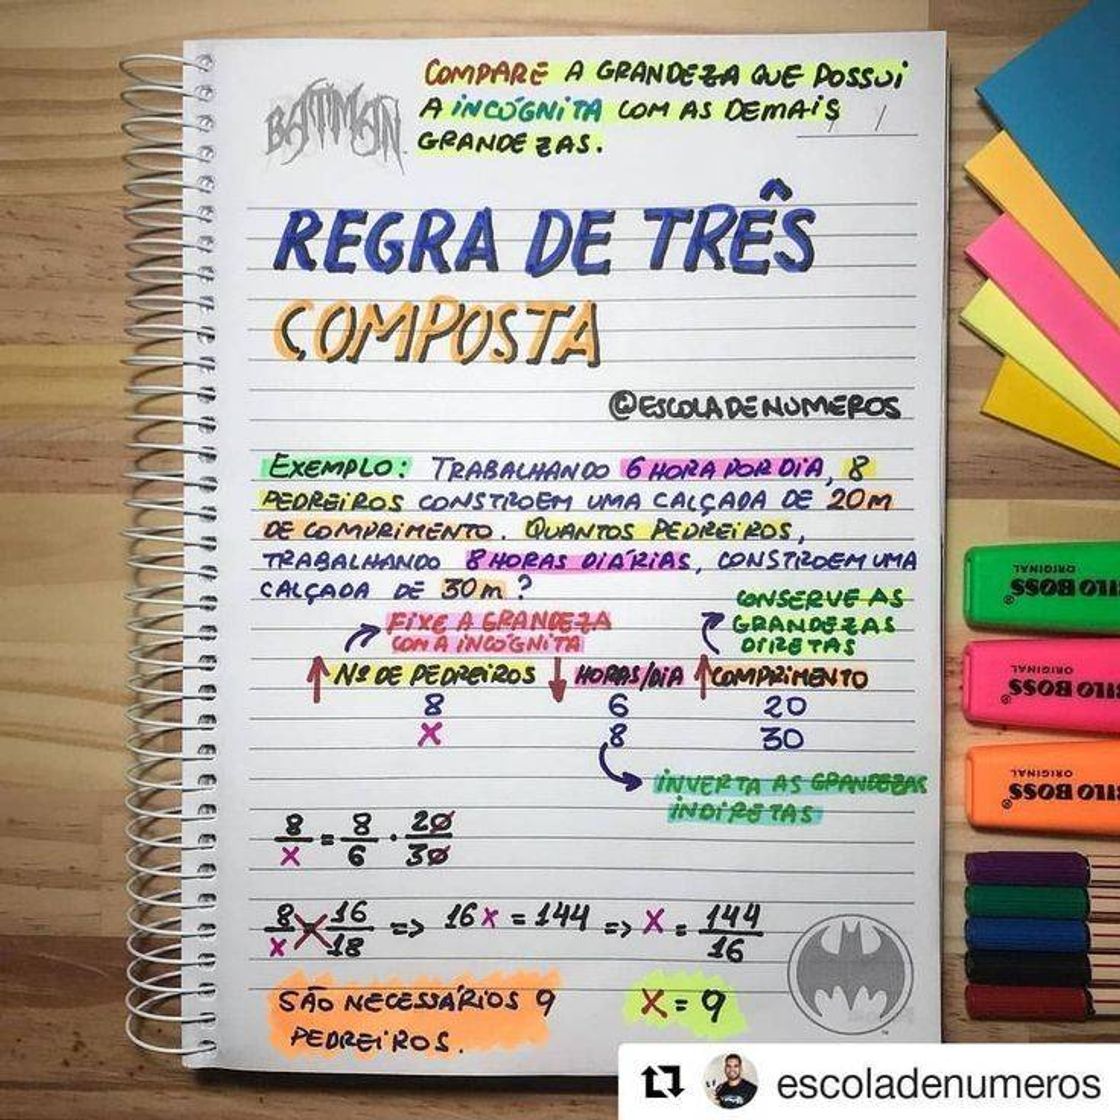 BATMAN
COMPARE A GRANDEZA QUE POSSUI
A INCÓGNITA COM AS DEMAIS
GRANDEZAS.
REGRA DE TRÊS
COMPOSTA
@ESCOLADENUMEROS
EXEMPLO: TRABALHANDO 6 HORA POR DIA, 8
PEDREIROS CONSTROEM UMA CALÇADA DE 20M
DE COMPRIMENTO. QUANTOS PEDREIROS,
TRABALHANDO 8 HORAS DIÁRIAS, CONSTROEM UMA
CALÇADA DE 30M?
FIXE A GRANDEZA
COM A INCÓGNITA
CONSERVE AS
GRANDEZAS
DIRETAS
↑ Nº DE PEDREIROS ↓ HORAS/DIA ↑ COMPRIMENTO
8 6 20
X 8 30
INVERTA AS GRANDEZAS
INDIRETAS
8/X = 8/6 · 20/30
8/X 16/18 => 16X = 144 => X = 144/16
SÃO NECESSÁRIOS 9
PEDREIROS.
X = 9
BOSS
ORIGINAL
BOSS
ORIGINAL
BOSS
ORIGINAL
escoladenumeros